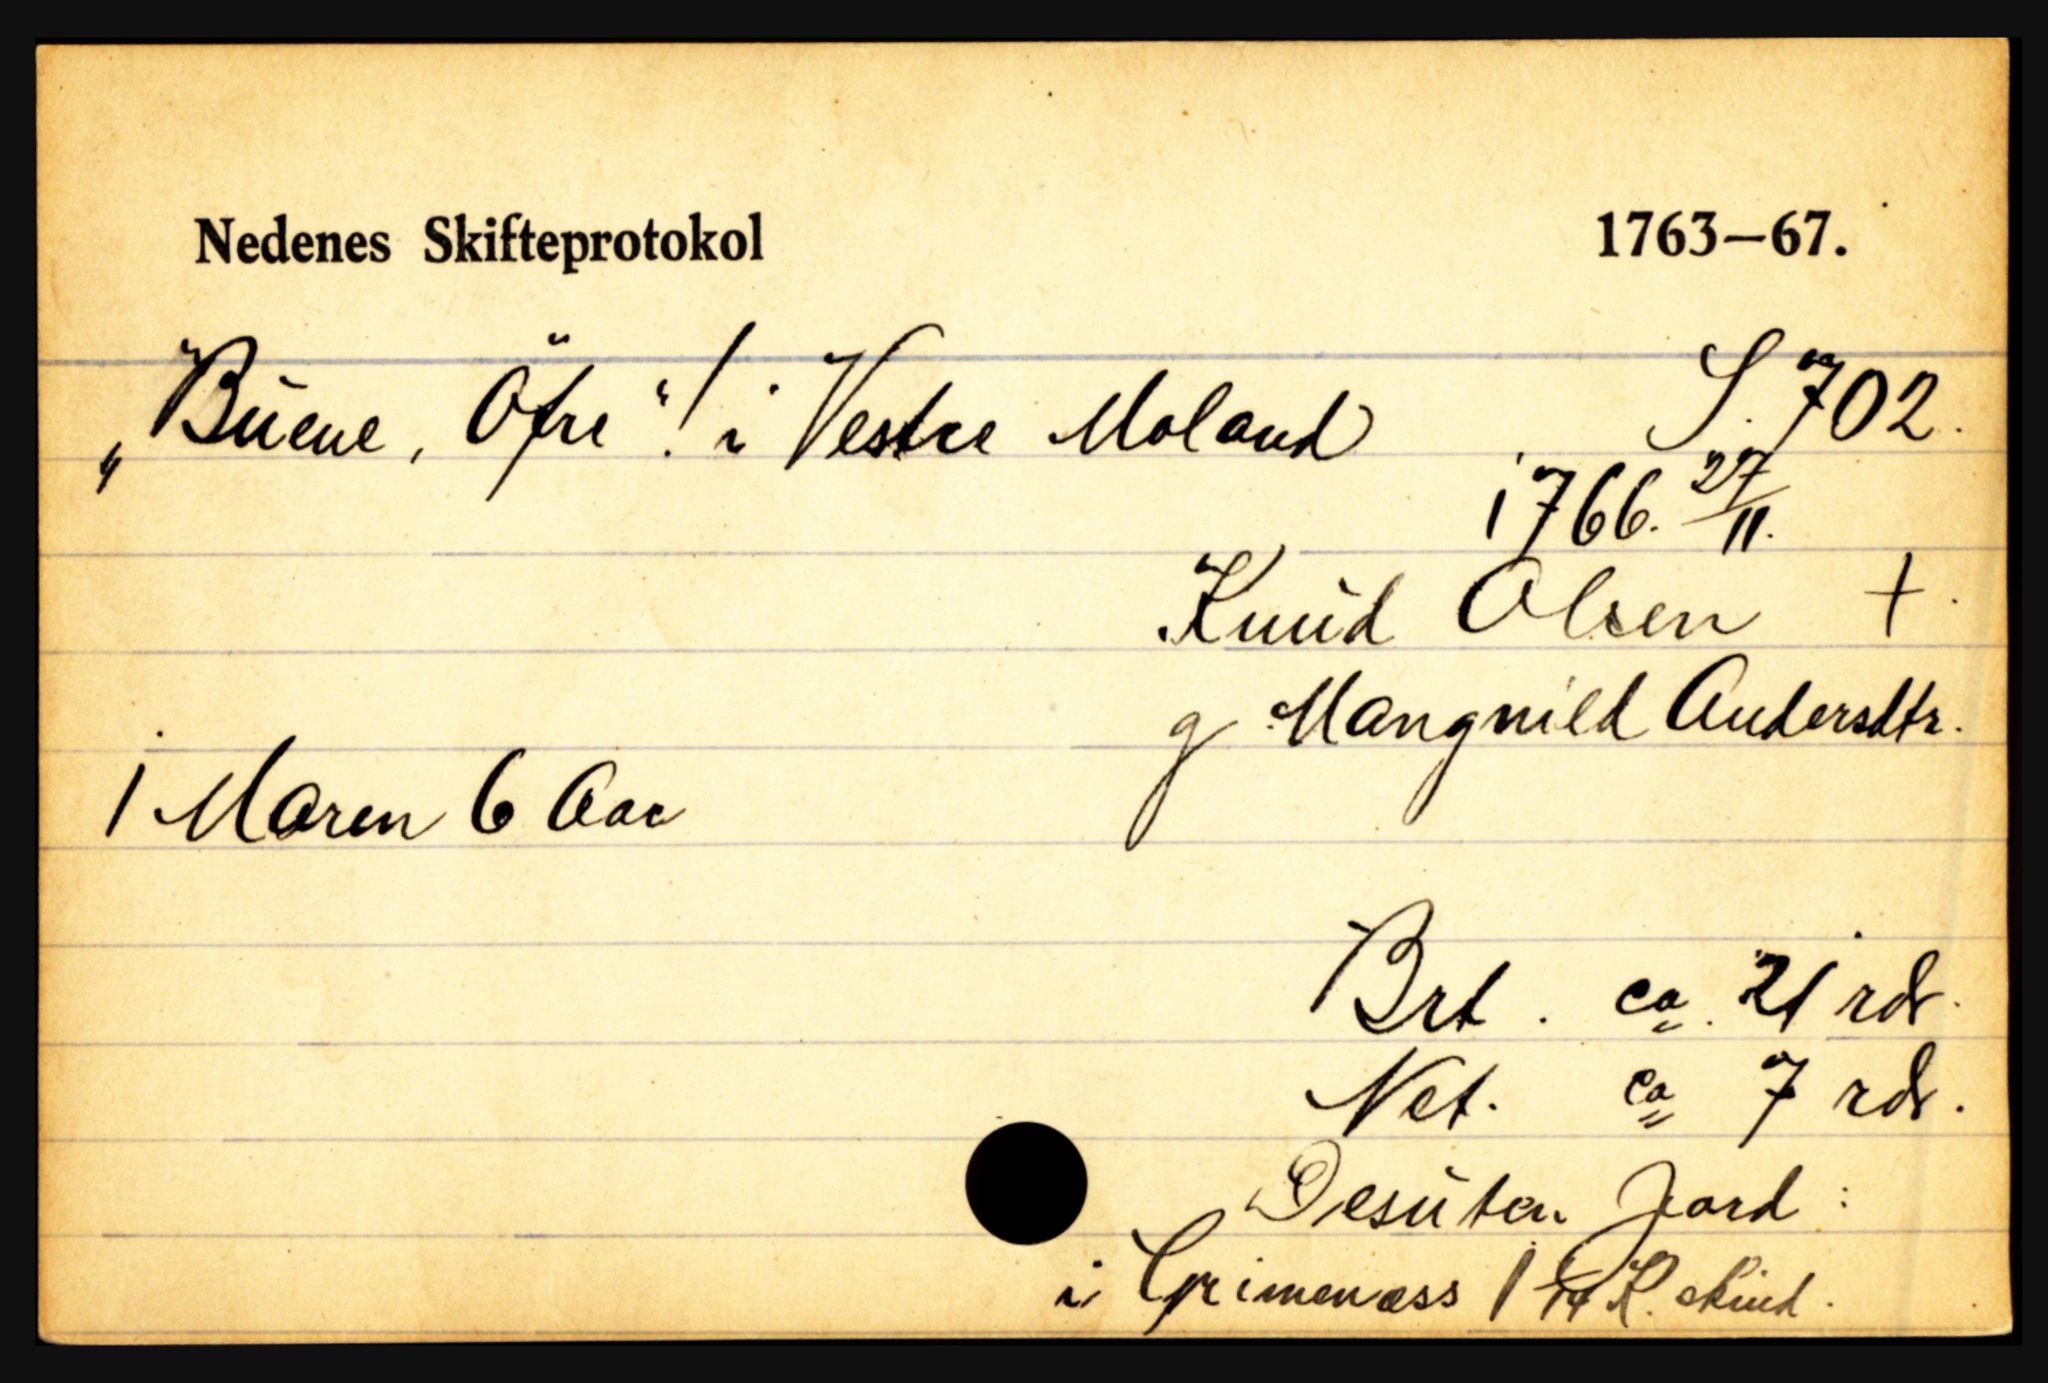 Nedenes Skifteprotokol 1763–67.
„Buene, Öfre“! i Vestre Moland S. 702.
1766. 27/11.
Knud Olsen +
g Mangnild Andersdtr.
1 Maren 6 Aar
Brt. ca. 21 rdr.
Net. ca 7 rdr.
Desuten Jord:
i Grimenæss 1 1/14 K. skind.